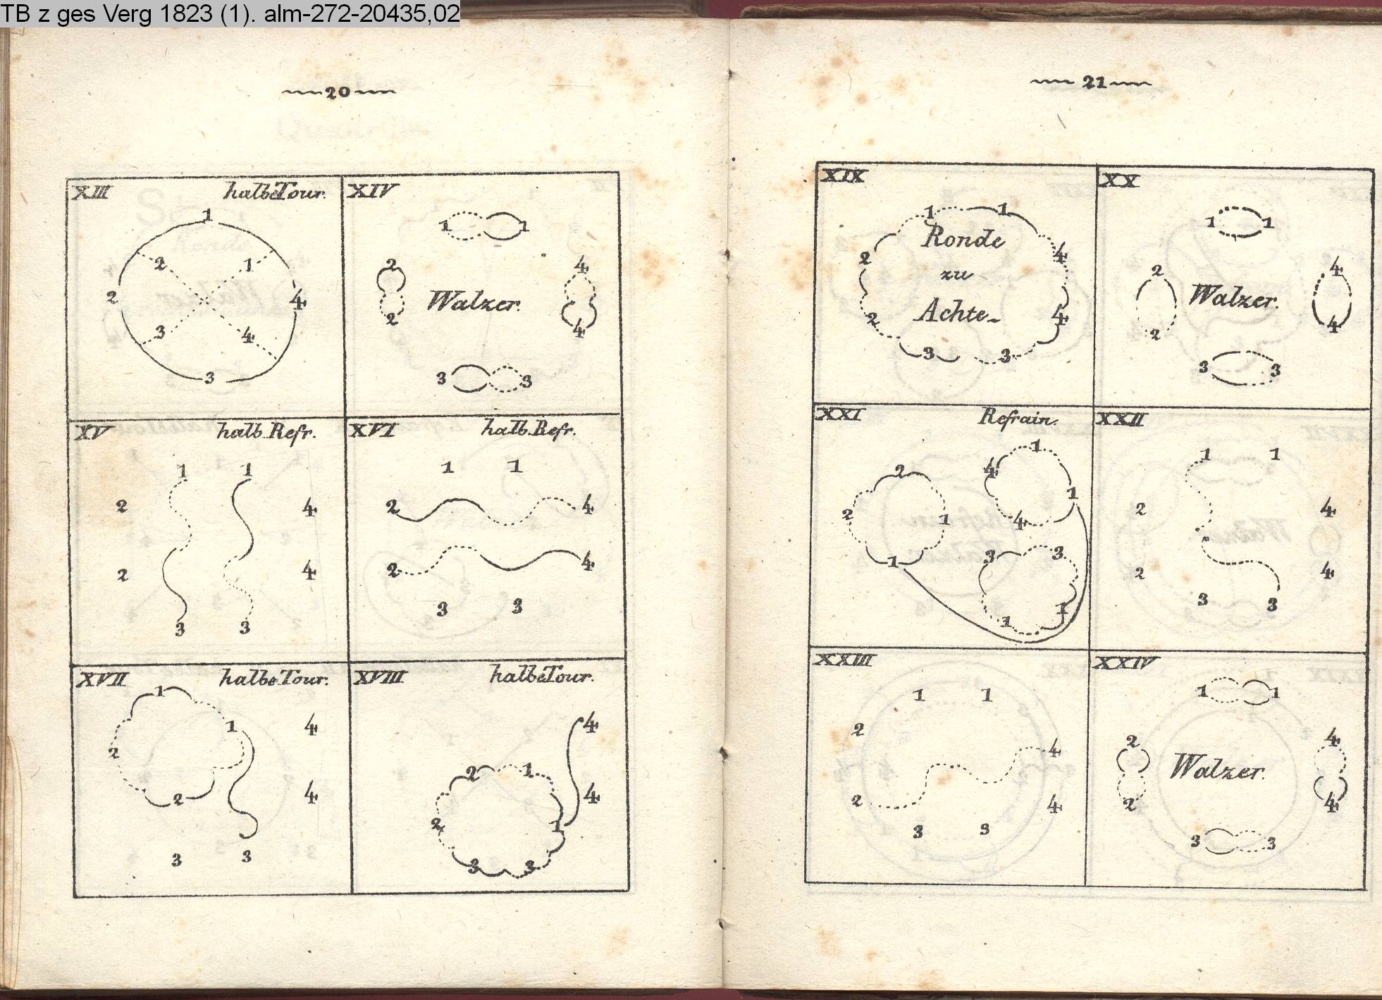 TB z ges Verg 1823 (1). alm-272-20435,02
20
XIII halbe Tour.
1
2 1
2 4
3 4
3
XIV
1 1
2 4
Walzer.
2 4
3 3
XV halb. Refr.
1 1
2 4
2 4
3 3
XVI halb. Refr.
1 1
2 4
2 4
3 3
XVII halbe Tour.
1
1 4
2
2 4
3 3
XVIII halbe Tour.
4
2 1
4
2 1
3 3
21
XIX
1 1
Ronde
2 4
zu
Achte
2 4
3 3
XX
1 1
2 4
Walzer.
2 4
3 3
XXI Refrain.
1
2 4
1
2 1 4
3 3
1
1 1
XXII
1 1
2 4
2 4
3 3
XXIII
1 1
2 4
2 4
3 3
XXIV
1 1
2 4
Walzer.
2 4
3 3